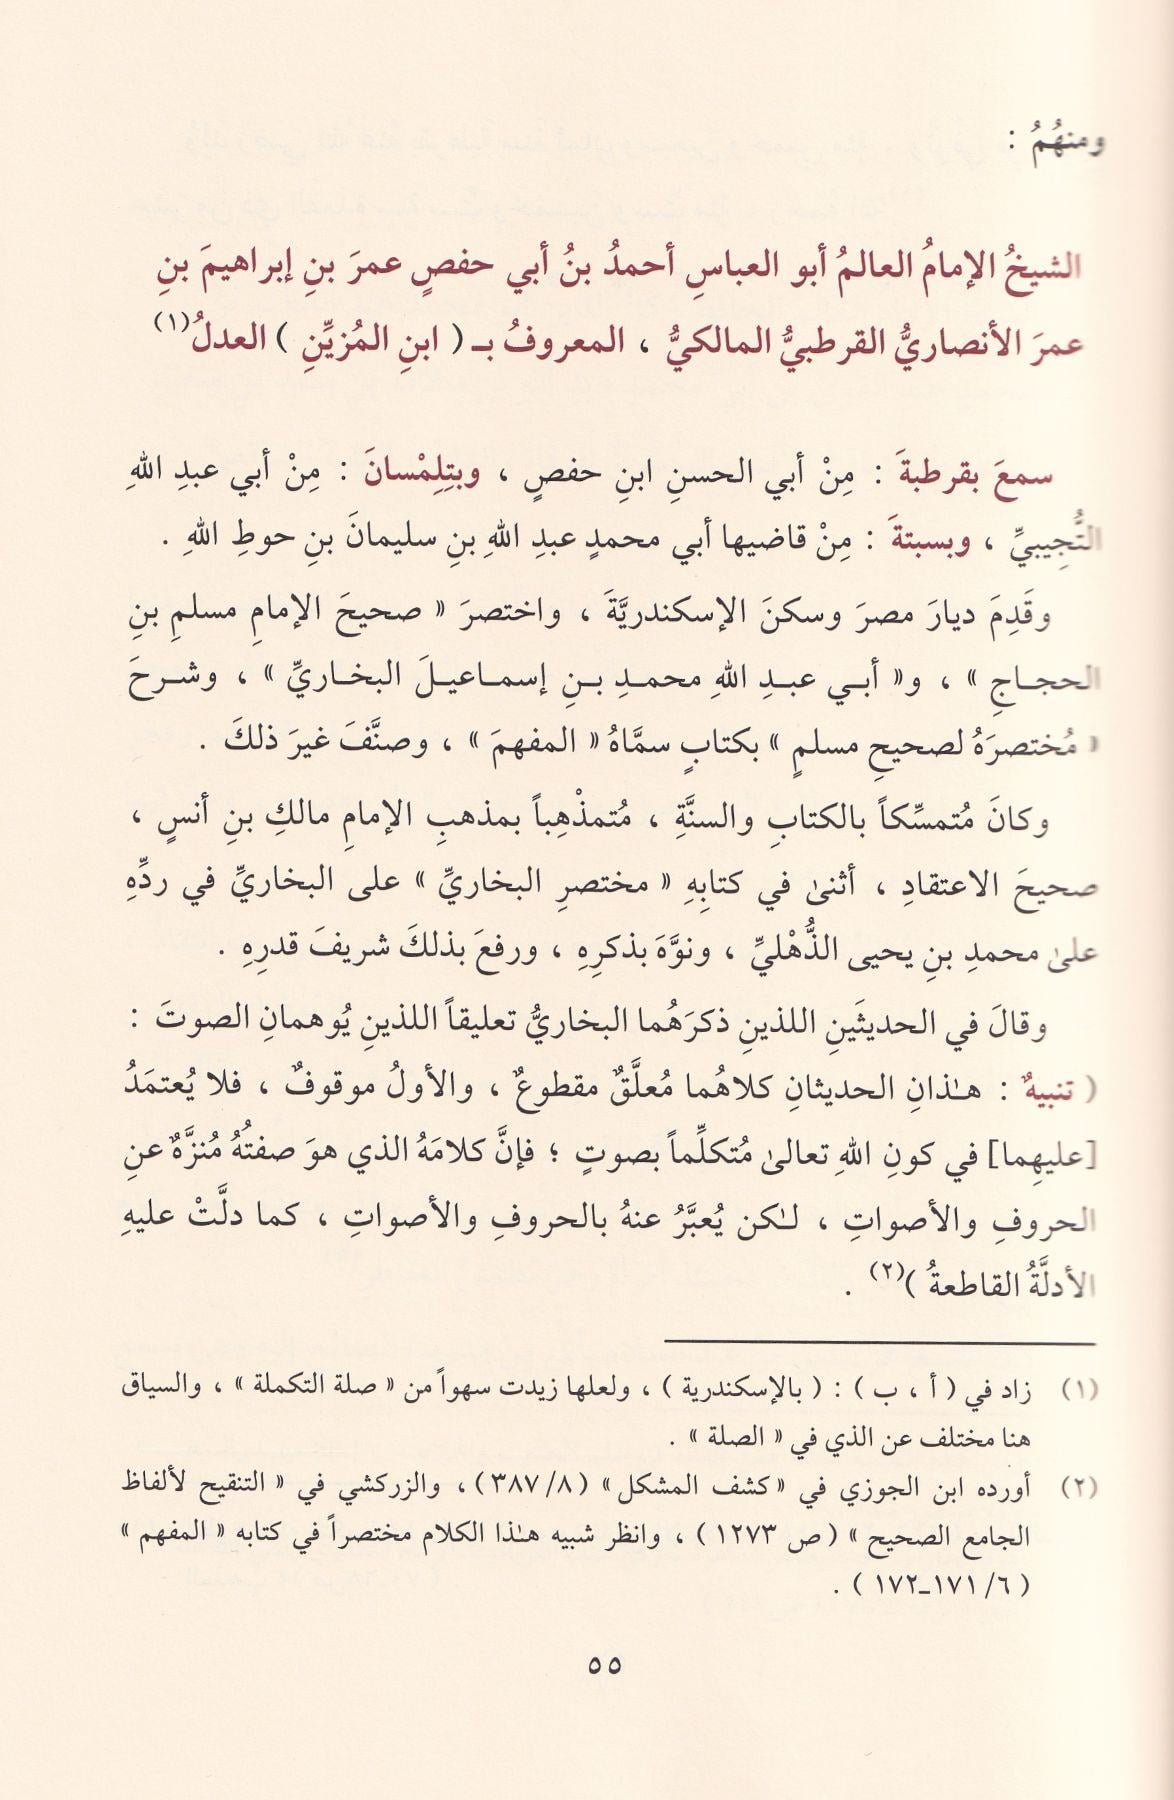 ومنهُمُ :
الشيخُ الإمامُ العالمُ أبو العباسِ أحمدُ بنُ أبي حفصٍ عمرَ بنِ إبراهيمَ بنِ
عمرَ الأنصاريُّ القرطبيُّ المالكيُّ ، المعروفُ بـ ( ابنِ المُزيِّنِ ) العدلُ(١)
سمعَ بقرطبةَ : مِنْ أبي الحسنِ ابنِ حفصٍ ، وبتِلِمْسانَ : مِنْ أبي عبدِ اللهِ
التُّجِيبيِّ ، وبسبتةَ : مِنْ قاضيها أبي محمدٍ عبدِ اللهِ بنِ سليمانَ بنِ حوطِ اللهِ .
وقَدِمَ ديارَ مصرَ وسكنَ الإسكندريَّةَ ، واختصرَ « صحيحَ الإمامِ مسلمِ بنِ
الحجاجِ » ، و« أبي عبدِ اللهِ محمدِ بنِ إسماعيلَ البخاريِّ » ، وشرحَ
« مُختصرَهُ لصحيحِ مسلمٍ » بكتابٍ سمَّاهُ « المفهمَ » ، وصنَّفَ غيرَ ذلكَ .
وكانَ مُتمسِّكاً بالكتابِ والسنَّةِ ، مُتمذْهِباً بمذهبِ الإمامِ مالكِ بنِ أنسٍ ،
صحيحَ الاعتقادِ ، أثنىٰ في كتابِهِ « مختصرِ البخاريِّ » على البخاريِّ في ردِّهِ
علىٰ محمدِ بنِ يحيى الذُّهْليِّ ، ونوَّهَ بذكرِهِ ، ورفعَ بذلكَ شريفَ قدرِهِ .
وقالَ في الحديثَينِ اللذينِ ذكرَهُما البخاريُّ تعليقاً اللذينِ يُوهمانِ الصوتَ :
( تنبيهٌ : هـٰذانِ الحديثانِ كلاهُما مُعلَّقٌ مقطوعٌ ، والأولُ موقوفٌ ، فلا يُعتمَدُ
[عليهِما] في كونِ اللهِ تعالىٰ مُتكلِّماً بصوتٍ ؛ فإنَّ كلامَهُ الذي هوَ صفتُهُ مُنزَّهٌ عنِ
الحروفِ والأصواتِ ، لـٰكن يُعبَّرُ عنهُ بالحروفِ والأصواتِ ، كما دلَّتْ عليهِ
الأدلَّةُ القاطعةُ )(٢) .
(١) زاد في ( أ ، ب ) : ( بالإسكندرية ) ، ولعلها زيدت سهواً من « صلة التكملة » ، والسياق
هنا مختلف عن الذي في « الصلة » .
(٢) أورده ابن الجوزي في « كشف المشكل » ( ٨/ ٣٨٧ ) ، والزركشي في « التنقيح لألفاظ
الجامع الصحيح » ( ص ١٢٧٣ ) ، وانظر شبيه هـٰذا الكلام مختصراً في كتابه « المفهم »
( ٦/ ١٧١ـ١٧٢ ) .
٥٥